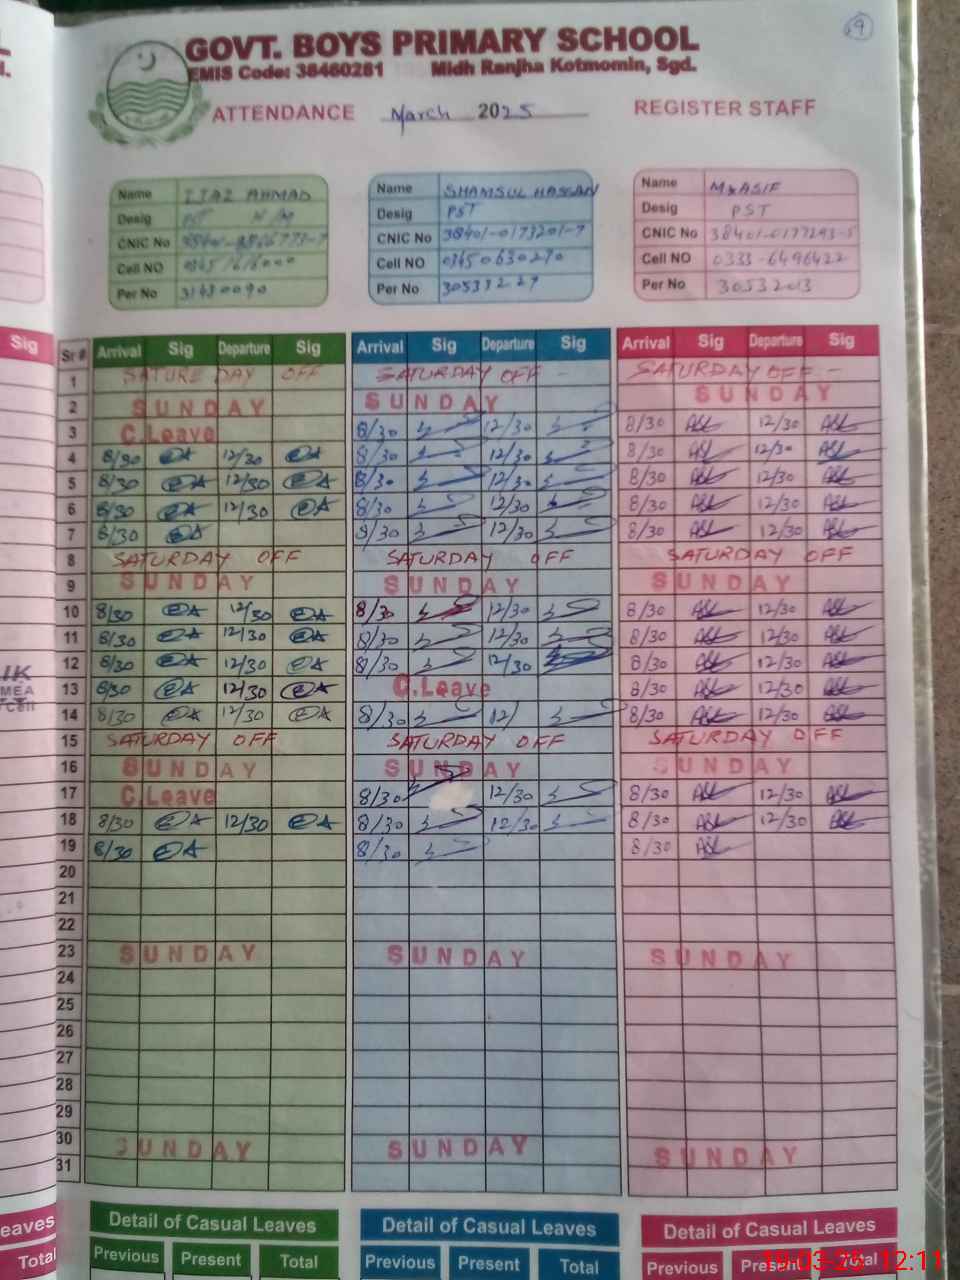 GOVT. BOYS PRIMARY SCHOOL
EMIS Code: 38460281 Midh Ranjha Kotmomin, Sgd.
ATTENDANCE March 2025 REGISTER STAFF
Name IJAZ AHMAD Name SHAMSUL HASSAN Name M ASIF
Desig PST Desig PST Desig PST
CNIC No CNIC No 38401-0173201-7 CNIC No 38401-0177293-5
Cell NO Cell NO 03450630270 Cell NO 0333-6496422
Per No 31430090 Per No 30533227 Per No 30532013
Sig
Sr # Arrival Sig Departure Sig Arrival Sig Departure Sig Arrival Sig Departure Sig
1 SATURE DAY OFF SATURDAY OFF - SATURDAY OFF -
2 SUNDAY SUNDAY SUNDAY
3 C.Leave 8/30 12/30 8/30 12/30
4 8/30 12/30 8/30 12/30 8/30 12/30
5 8/30 12/30 8/30 12/30 8/30 12/30
6 8/30 12/30 8/30 12/30 8/30 12/30
7 8/30 8/30 12/30 8/30 12/30
8 SATURDAY OFF SATURDAY OFF SATURDAY OFF
9 SUNDAY SUNDAY SUNDAY
10 8/30 12/30 8/30 12/30 8/30 12/30
11 8/30 12/30 8/30 12/30 8/30 12/30
12 8/30 12/30 8/30 12/30 8/30 12/30
13 8/30 12/30 C.Leave 8/30 12/30
14 8/30 12/30 8/30 12/ 8/30 12/30
15 SATURDAY OFF SATURDAY OFF SATURDAY OFF
16 SUNDAY SUNDAY SUNDAY
17 C.Leave 8/30 12/30 8/30 12/30
18 8/30 12/30 8/30 12/30 8/30 12/30
19 8/30 8/30 8/30
20
21
22
23 SUNDAY SUNDAY SUNDAY
24
25
26
27
28
29
30 SUNDAY SUNDAY SUNDAY
31
Detail of Casual Leaves Detail of Casual Leaves Detail of Casual Leaves
eaves Previous Present Total Previous Present Total Previous Present Total
Total
19-03-25 12:11